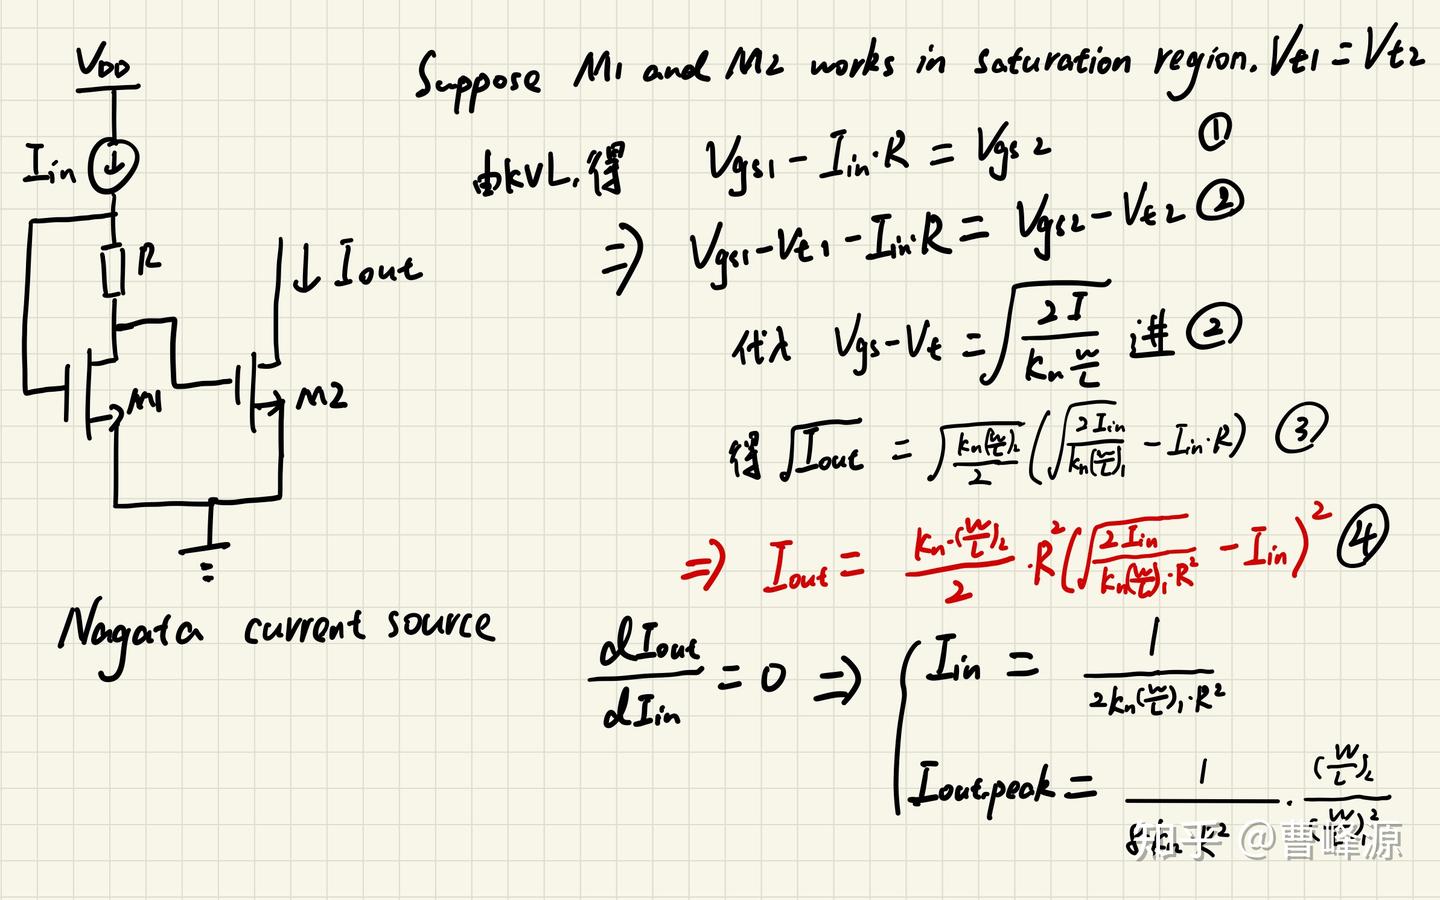 V_DD
I_in
R
↓ I_out
M1
M2
Nagata current source
Suppose M1 and M2 works in saturation region. V_t1 = V_t2
由KVL,得 V_gs1 - I_in·R = V_gs2 ①
⇒ V_gs1 - V_t1 - I_in·R = V_gs2 - V_t2 ②
代入 V_gs - V_t = √(2I / (k_n W/L)) 进 ②
得 √I_out = √(k_n(W/L)_2 / 2) (√(2I_in / (k_n(W/L)_1)) - I_in·R) ③
⇒ I_out = (k_n·(W/L)_2 / 2)·R² (√(2I_in / (k_n(W/L)_1·R²)) - I_in)² ④
dI_out/dI_in = 0 ⇒ { I_in = 1 / (2k_n(W/L)_1·R²)
I_out,peak = 1 / (8k_n·R²) · (W/L)_2 / (W/L)_1²
知乎 @曹峰源